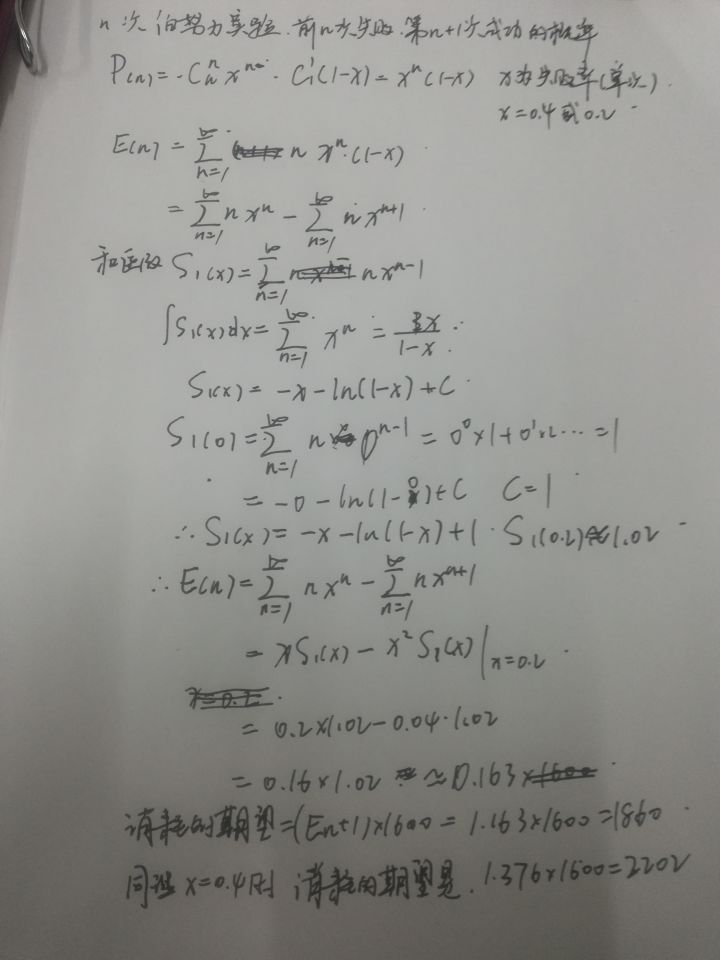 n次伯努力实验.前n次失败.第n+1次成功的概率
P(n)=C_n^n x^n · C_1^1(1-x)=x^n(1-x) x为失败率(单次).
x=0.4或0.2
E(n)=∑_{n=1}^∞ n x^n·(1-x)
=∑_{n=1}^∞ nx^n-∑_{n=1}^∞ nx^{n+1}
和函数 S_1(x)=∑_{n=1}^∞ nx^{n-1}
∫S_1(x)dx=∑_{n=1}^∞ x^n=x/(1-x)
S_1(x)=-x-ln(1-x)+C
S_1(0)=∑_{n=1}^∞ n 0^{n-1}=0^0×1+0^1×2…=1
=-0-ln(1-0)+C C=1
∴S_1(x)=-x-ln(1-x)+1·S_1(0.2)≈1.02
∴E(n)=∑_{n=1}^∞ nx^n-∑_{n=1}^∞ nx^{n+1}
=xS_1(x)-x^2S_1(x)|_{x=0.2}
=0.2×1.02-0.04·1.02
=0.16×1.02≈0.163
消耗的期望=(En+1)×1600=1.163×1600=1860
同理x=0.4时 消耗的期望是.1.376×1600=2202